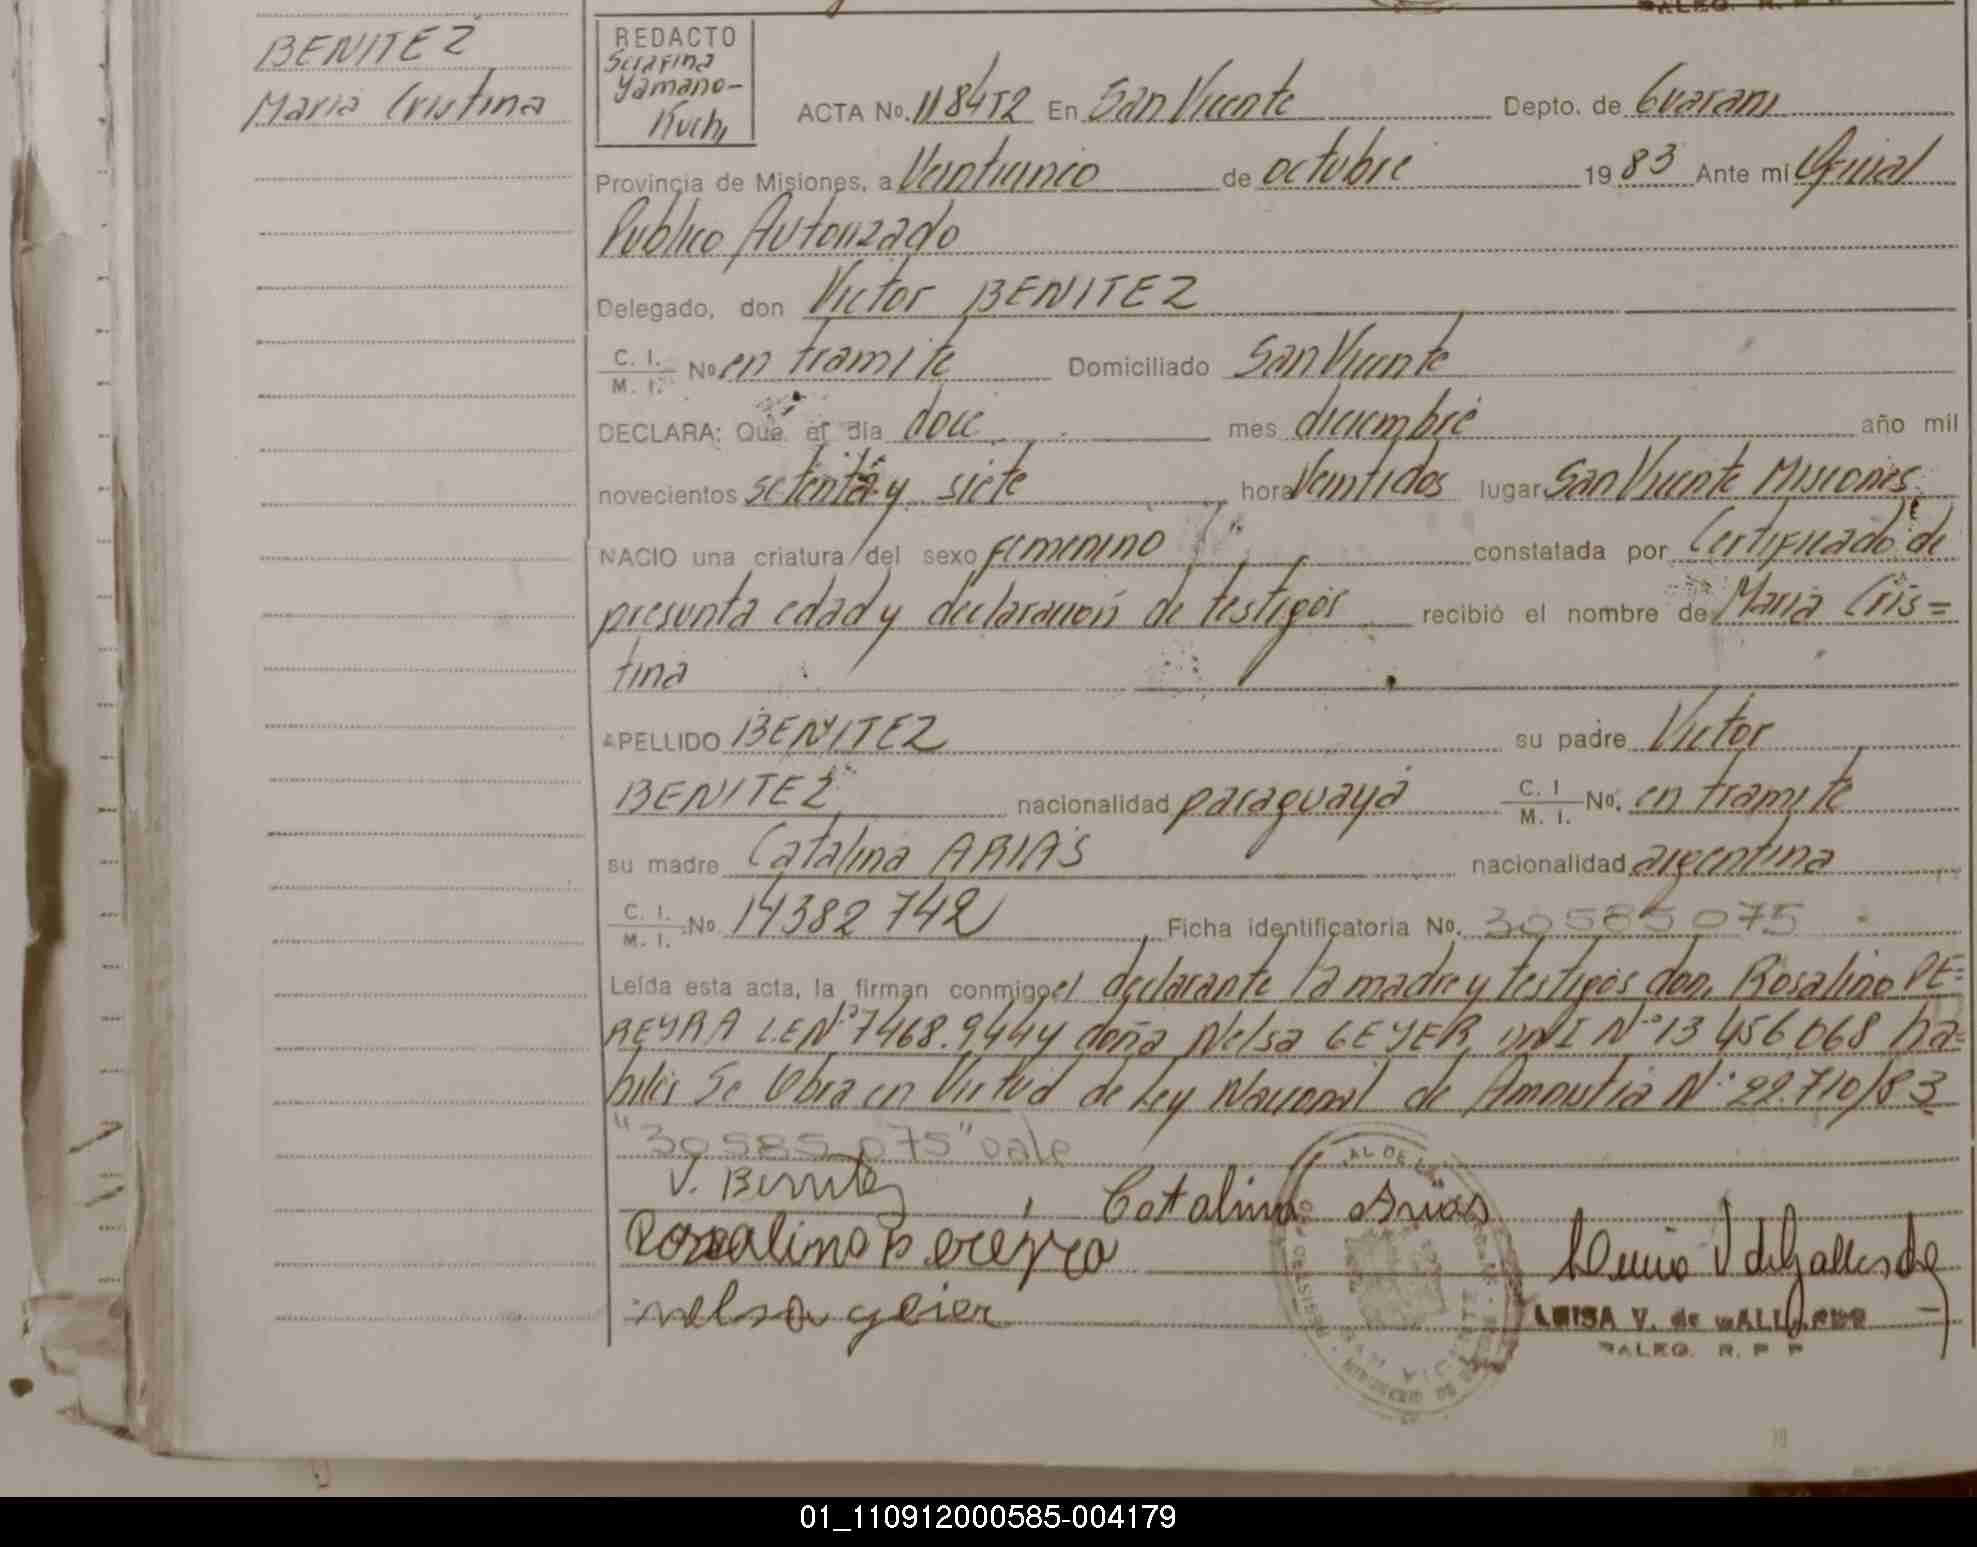 BENITEZ
Maria Cristina
REDACTO
Serafina
Yamano-
Kuchi
ACTA No. 1184T2 En San Vicente Depto. de Guarani
Provincia de Misiones, a Veinticinco de octubre 1983 Ante mi Oficial
Publico Autorizado
Delegado, don Victor BENITEZ
C. I. M. I. No en tramite Domiciliado San Vicente
DECLARA: Que el dia doce mes diciembre año mil
novecientos setenta y siete hora Veintidos lugar San Vicente Misiones
NACIO una criatura del sexo femenino constatada por Certificado de
presunta edad y declaracion de testigos recibió el nombre de Maria Cris=
tina
APELLIDO BENITEZ su padre Victor
BENITEZ nacionalidad paraguaya C. I M. I. No. en tramite
su madre Catalina ARIAS nacionalidad argentina
C. I. M. I. No 14382742 Ficha identificatoria No. 30585075
Leída esta acta, la firman conmigo el declarante la madre y testigos don Rosalino PE=
REYRA L.E N° 7468.944 y doña Nelsa GEYER DNI N° 13 456068 ha=
biles Se Obra en Virtud de Ley Nacional de Amnistia N° 22.710/83
"30585075" vale
V. Benitez
Catalina Arias
Rosalino Pereyra
nelsa geier
LUISA V. de GALLARDO
DALEG. R. P P
SAN VICENTE
01_110912000585-004179